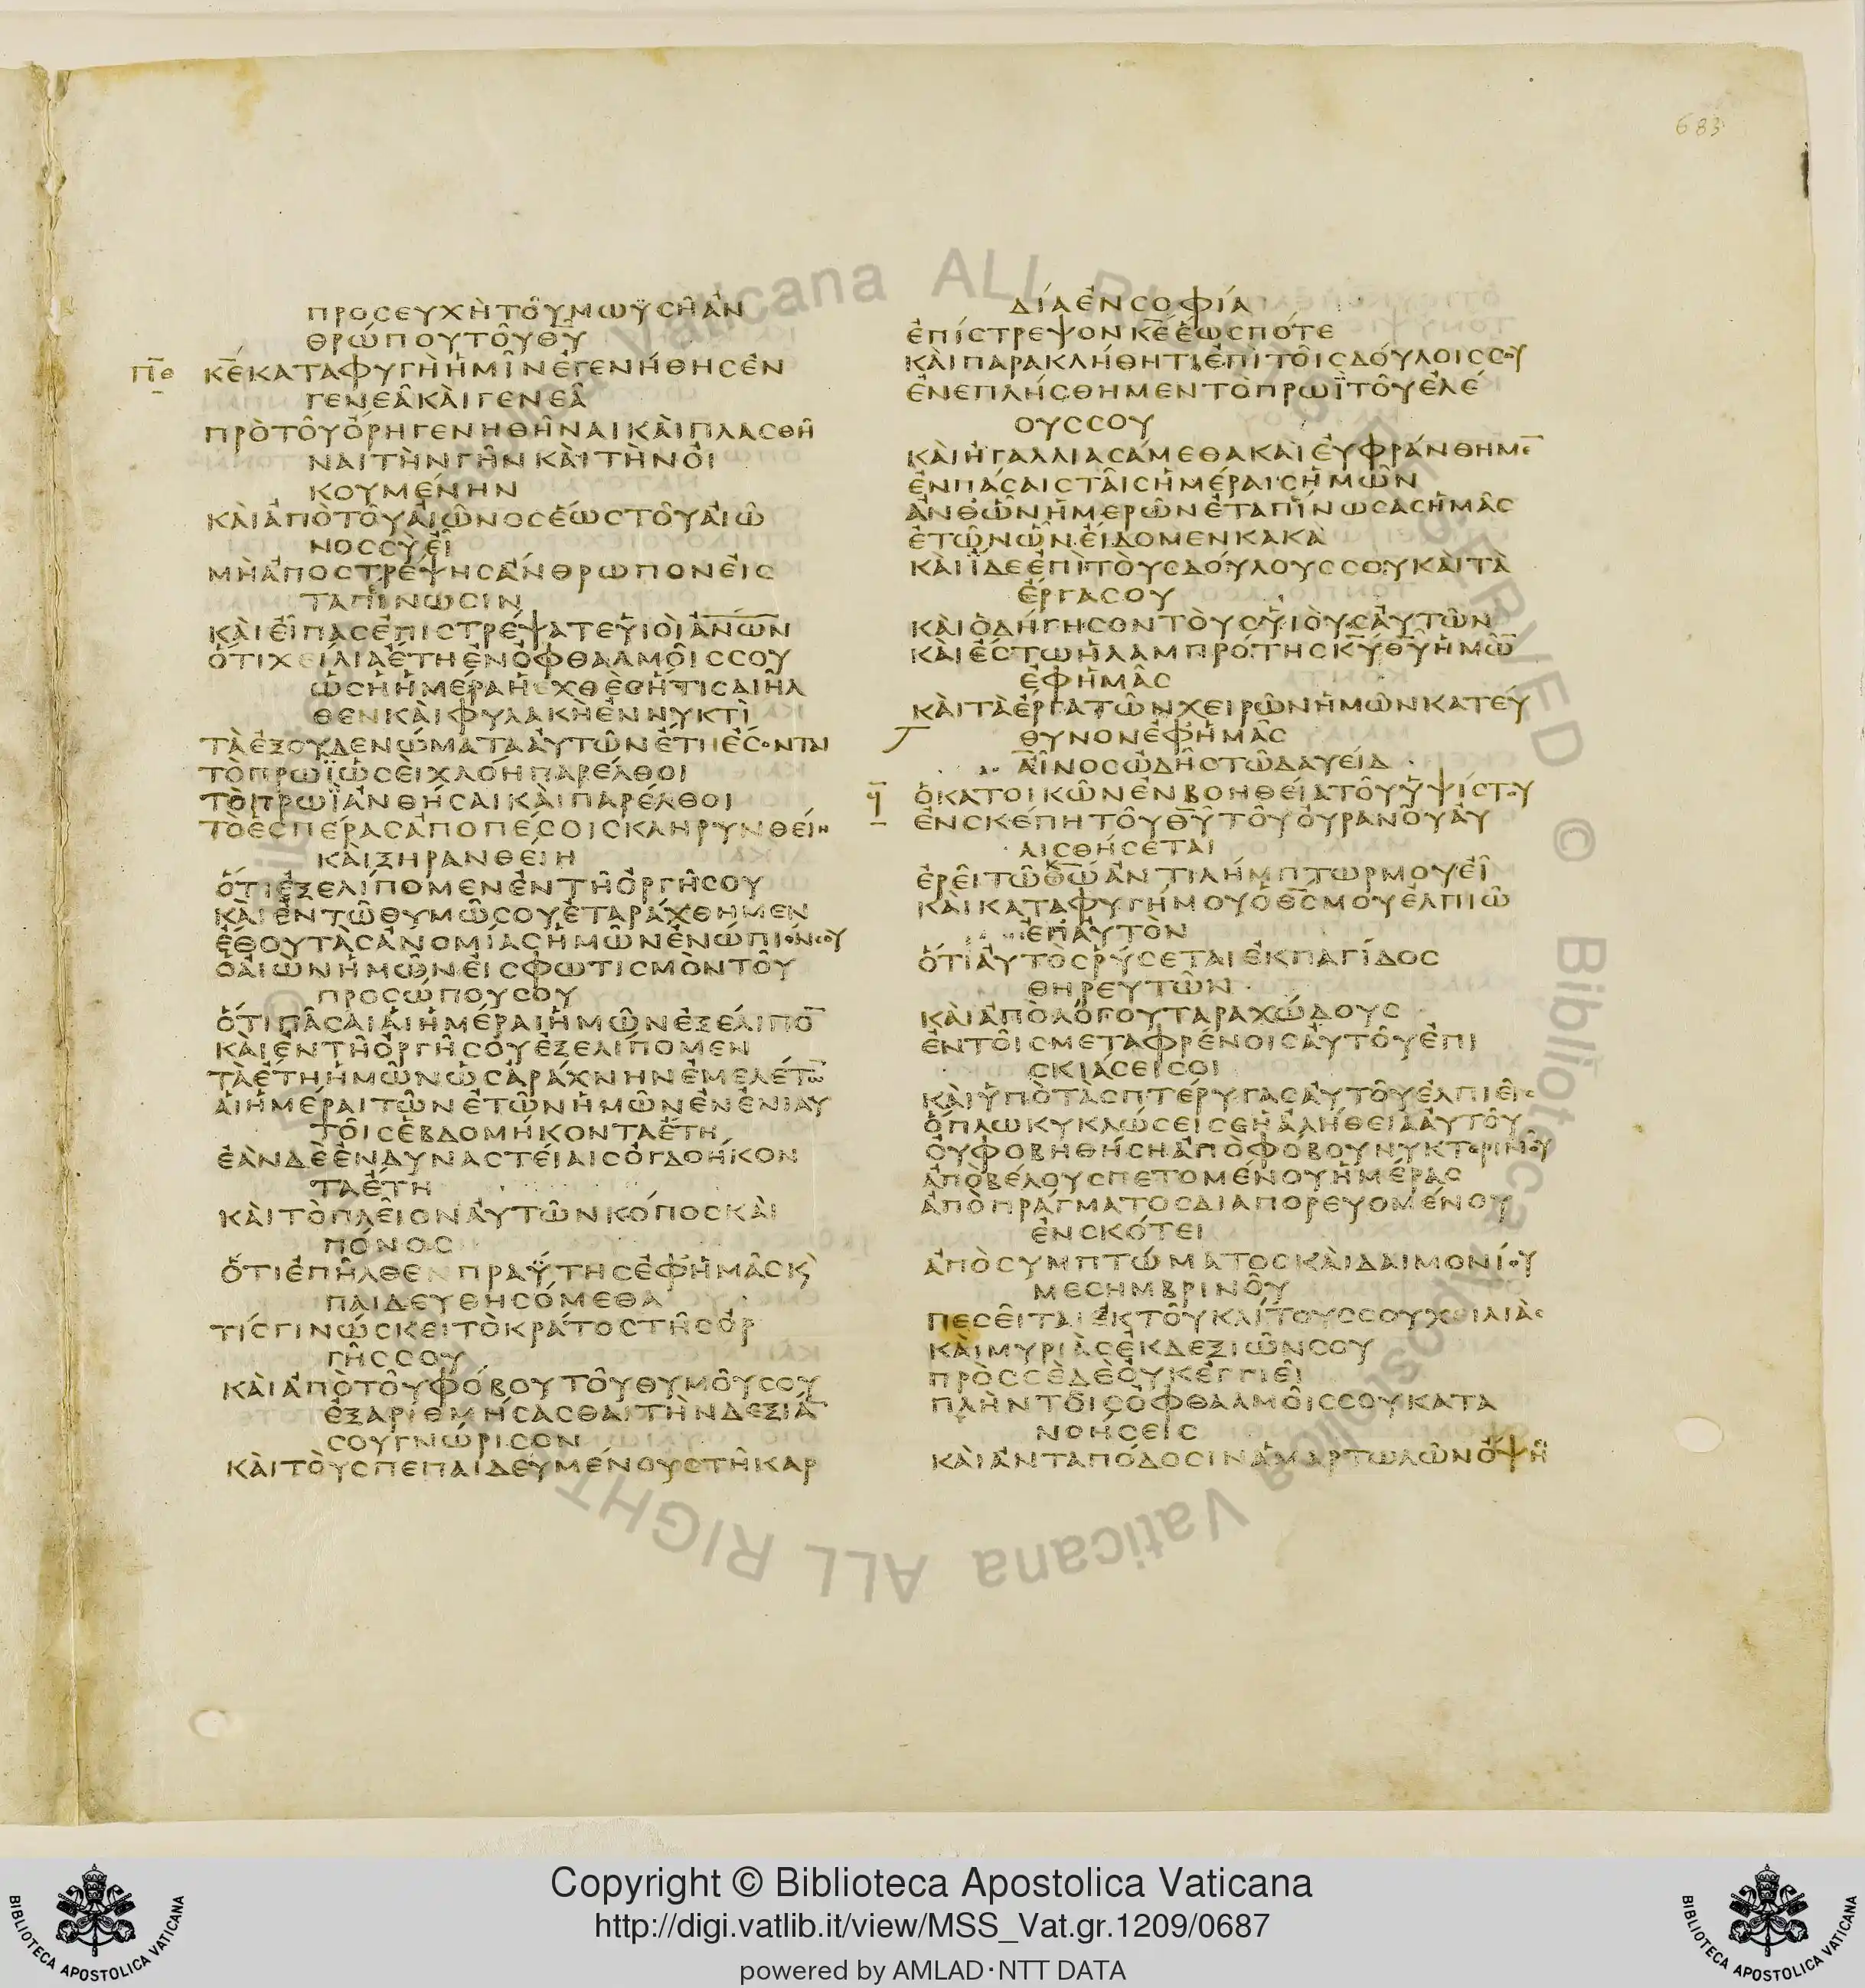 683
ΠΡΟϹΕΥΧῊΤΟΥ͂ΜΩΫϹΗ͂ἈΝ
ΘΡΏΠΟΥΤΟΥ͂Θ̅Υ̅
Π̅Θ̅
Κ̅Ε̅ΚΑΤΑΦΥΓῊἩΜΙ͂ΝἘΓΕΝΉΘΗϹἘΝ
ΓΕΝΕΑ͂ΚΑῚΓΕΝΕΑ͂
ΠΡῸΤΟΥ͂ὌΡΗΓΕΝΗΘΗ͂ΝΑΙΚΑῚΠΛΑϹΘΗ͂
ΝΑΙΤῊΝΓΗ͂ΝΚΑῚΤῊΝΟἸ
ΚΟΥΜΈΝΗΝ
ΚΑῚἈΠῸΤΟΥ͂ΑἸΩ͂ΝΟϹἝΩϹΤΟΥ͂ΑἸΩ͂
ΝΟϹϹῪΕἾ
ΜῊἈΠΟϹΤΡΈΨΗϹἌΝΘΡΩΠΟΝΕἸϹ
ΤΑΠΊΝΩϹΙΝ
ΚΑῚΕἾΠΑϹἘΠΙϹΤΡΈΨΑΤΕΥἹΟῚἈ̅Ν̅Ώ̅Ν̅
ὍΤΙΧΕΊΛΙΑἜΤΗἘΝὈΦΘΑΛΜΟΙ͂ϹϹΟΥ
ὩϹἩἩΜΈΡΑἩἘΧΘῈϹἭΤΙϹΔΙΗ͂Λ
ΘΕΝΚΑῚΦΥΛΑΚῊἘΝΝΥΚΤῚ
ΤᾺἘΞΟΥΔΕΝΏΜΑΤΑΑΥ̓ΤΩ͂ΝἜΤΗἜϹΟΝΤΑΙ
ΤῸΠΡΩΪ̀ὩϹΕῚΧΛΌΗΠΑΡΈΛΘΟΙ
ΤῸΠΡΩΪ̀ἈΝΘΉϹΑΙΚΑῚΠΑΡΈΛΘΟΙ
ΤῸἙϹΠΈΡΑϹἈΠΟΠΈϹΟΙϹΚΛΗΡΥΝΘΕΊΗ
ΚΑῚΞΗΡΑΝΘΕΊΗ
ὍΤΙἘΞΕΛΊΠΟΜΕΝἘΝΤΗ͂ὈΡΓΗ͂ϹΟΥ
ΚΑῚἘΝΤΩ͂ΘΥΜΩ͂ϹΟΥἘΤΑΡΆΧΘΗΜΕΝ
ἜΘΟΥΤᾺϹἈΝΟΜΊΑϹἩΜΩ͂ΝἘΝΏΠΙΌΝϹΟΥ
ὉΑἸῺΝἩΜΩ͂ΝΕἸϹΦΩΤΙϹΜῸΝΤΟΥ͂
ΠΡΟϹΏΠΟΥϹΟΥ
ὍΤΙΠΑ͂ϹΑΙΑἹἩΜΈΡΑΙἩΜΩ͂ΝἘΞΕΛΊΠΟ̅
ΚΑῚἘΝΤΗ͂ὈΡΓΗ͂ϹΟΥἘΞΕΛΊΠΟΜΕΝ
ΤᾺἜΤΗἩΜΩ͂ΝὩϹἈΡΆΧΝΗΝἘΜΕΛΈΤΩ̅
ΑἹἩΜΈΡΑΙΤΩ͂ΝἘΤΩ͂ΝἩΜΩ͂ΝἘΝἘΝΙΑΥ
ΤΟΙ͂ϹἙΒΔΟΜΉΚΟΝΤΑἜΤΗ
ἘᾺΝΔῈἘΝΔΥΝΑϹΤΕΊΑΙϹὈΓΔΟΉΚΟΝ
ΤΑἜΤΗ
ΚΑῚΤῸΠΛΕΙ͂ΟΝΑΥ̓ΤΩ͂ΝΚΌΠΟϹΚΑῚ
ΠΌΝΟϹ
ὍΤΙἘΠΗ͂ΛΘΕΝΠΡΑΫ́ΤΗϹἘΦἩΜΑ͂ϹΚ̀
ΠΑΙΔΕΥΘΗϹΌΜΕΘΑ
ΤΊϹΓΙΝΏϹΚΕΙΤῸΚΡΆΤΟϹΤΗ͂ϹὈΡ
ΓΗ͂ϹϹΟΥ
ΚΑῚἈΠῸΤΟΥ͂ΦΌΒΟΥΤΟΥ͂ΘΥΜΟΥ͂ϹΟΥ
ἘΞΑΡΙΘΜΉϹΑϹΘΑΙΤῊΝΔΕΞΙΆ̅
ϹΟΥΓΝΏΡΙϹΟΝ
ΚΑῚΤΟῪϹΠΕΠΑΙΔΕΥΜΈΝΟΥϹΤΗ͂ΚΑΡ
ΔΊΑἘΝϹΟΦΊΑ
ἘΠΊϹΤΡΕΨΟΝΚ̅Ε̅ἝΩϹΠΌΤΕ
ΚΑῚΠΑΡΑΚΛΉΘΗΤΙἘΠῚΤΟΙ͂ϹΔΟΎΛΟΙϹϹΟΥ
ἘΝΕΠΛΉϹΘΗΜΕΝΤῸΠΡΩΪ̀ΤΟΥ͂ἘΛΈ
ΟΥϹϹΟΥ
ΚΑῚἨΓΑΛΛΙΑϹΆΜΕΘΑΚΑῚΕΥ̓ΦΡΆΝΘΗΜΕ̅
ἘΝΠΆϹΑΙϹΤΑΙ͂ϹἩΜΈΡΑΙϹἩΜΩ͂Ν
ἈΝΘὯΝἩΜΕΡΩ͂ΝἘΤΑΠΊΝΩϹΑϹἩΜΑ͂Ϲ
ἘΤΩ͂ΝὯΝΕἼΔΟΜΕΝΚΑΚᾺ
ΚΑῚΪ́ΔΕἘΠῚΤΟῪϹΔΟΎΛΟΥϹϹΟΥΚΑῚΤᾺ
ἜΡΓΑϹΟΥ
ΚΑῚὉΔΉΓΗϹΟΝΤΟῪϹΥἹΟῪϹΑΥ̓ΤΩ͂Ν
ΚΑῚἜϹΤΩἩΛΑΜΠΡΌΤΗϹΚ̅Υ̅Θ̅Υ̅ἩΜΩ̅
ἘΦἩΜΑ͂Ϲ
ΚΑῚΤᾺἜΡΓΑΤΩ͂ΝΧΕΙΡΩ͂ΝἩΜΩ͂ΝΚΑΤΕΎ
ΘΥΝΟΝἘΦἩΜΑ͂Ϲ
ΑἾΝΟϹὨΔΗ͂ϹΤΩ͂ΔΑΥΕΊΔ
Ϟ̅
ὉΚΑΤΟΙΚΩ͂ΝἘΝΒΟΗΘΕΊΑΤΟΥ͂ὙΨΊϹΤΟΥ
ἘΝϹΚΈΠΗΤΟΥ͂Θ̅Υ̅ΤΟΥ͂ΟΥ̓ΡΑΝΟΥ͂ΑΥ̓
ΛΙϹΘΉϹΕΤΑΙ
ἘΡΕΙ͂ΤΩ͂Θ̅Ω̅ἈΝΤΙΛΉΜΠΤΩΡΜΟΥΕἾ
ΚΑῚΚΑΤΑΦΥΓΉΜΟΥὉΘ̅Ϲ̅ΜΟΥἘΛΠΙΩ͂
ἘΠΑΥ̓ΤῸΝ
ὍΤΙΑΥ̓ΤῸϹΡΎϹΕΤΑΙἘΚΠΑΓΊΔΟϹ
ΘΗΡΕΥΤΩ͂Ν
ΚΑῚἈΠῸΛΌΓΟΥΤΑΡΑΧΏΔΟΥϹ
ἘΝΤΟΙ͂ϹΜΕΤΑΦΡΈΝΟΙϹΑΥ̓ΤΟΥ͂ἘΠΙ
ϹΚΙΆϹΕΙϹΟΙ
ΚΑῚὙΠῸΤᾺϹΠΤΈΡΥΓΑϹΑΥ̓ΤΟΥ͂ἘΛΠΙΕΙ͂Ϲ
ὍΠΛΩΚΥΚΛΏϹΕΙϹΕἩἈΛΉΘΕΙΑΑΥ̓ΤΟΥ͂
ΟΥ̓ΦΟΒΗΘΉϹΗἈΠῸΦΌΒΟΥΝΥΚΤΕΡΙΝΟΥ͂
ἈΠῸΒΈΛΟΥϹΠΕΤΟΜΈΝΟΥἩΜΈΡΑϹ
ἈΠῸΠΡΆΓΜΑΤΟϹΔΙΑΠΟΡΕΥΟΜΈΝΟΥ
ἘΝϹΚΌΤΕΙ
ἈΠῸϹΥΜΠΤΏΜΑΤΟϹΚΑῚΔΑΙΜΟΝΊΟΥ
ΜΕϹΗΜΒΡΙΝΟΥ͂
ΠΕϹΕΙ͂ΤΑΙἘΚΤΟΥ͂ΚΛΊΤΟΥϹϹΟΥΧΕΙΛΙᾺϹ
ΚΑῚΜΥΡΙᾺϹἘΚΔΕΞΙΩ͂ΝϹΟΥ
ΠΡῸϹϹῈΔῈΟΥ̓ΚἘΓΓΙΕΙ͂
ΠΛῊΝΤΟΙ͂ϹὈΦΘΑΛΜΟΙ͂ϹϹΟΥΚΑΤΑ
ΝΟΉϹΕΙϹ
ΚΑῚἈΝΤΑΠΌΔΟϹΙΝἉΜΑΡΤΩΛΩ͂ΝὌΨΗ
Copyright © Biblioteca Apostolica Vaticana
http://digi.vatlib.it/view/MSS_Vat.gr.1209/0687
powered by AMLAD·NTT DATA
BIBLIOTECA APOSTOLICA VATICANA
BIBLIOTECA APOSTOLICA VATICANA